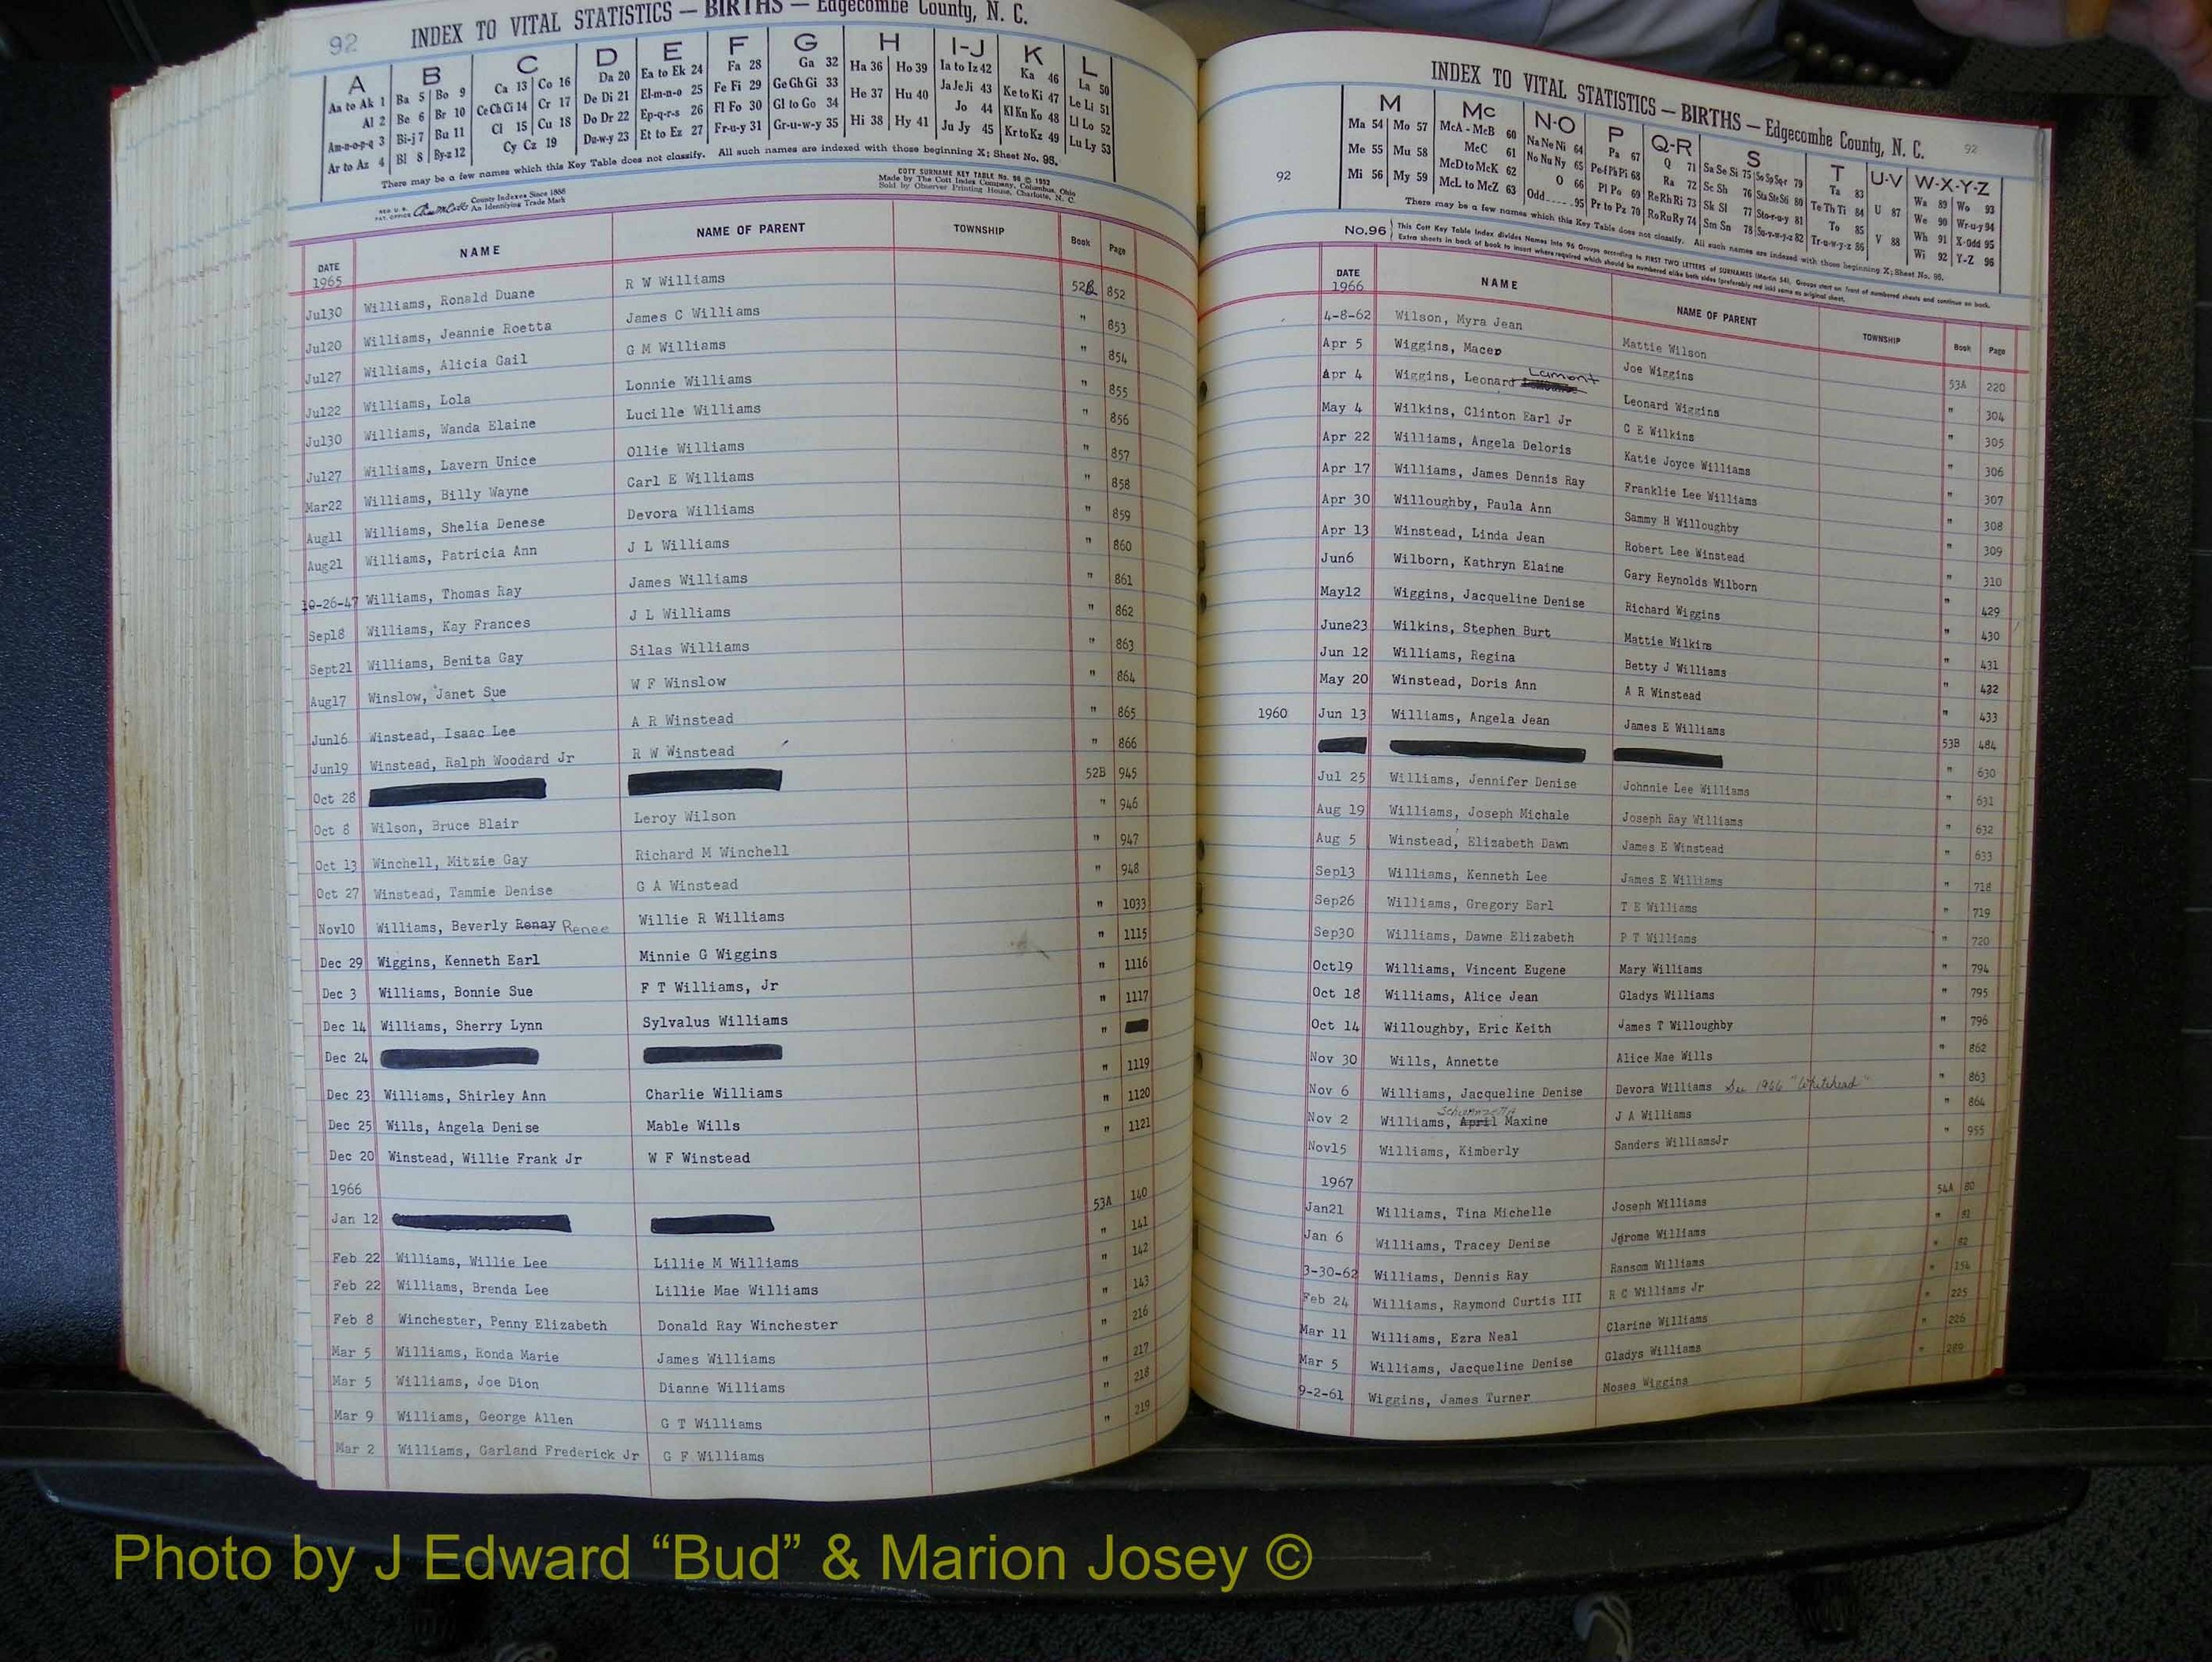 92 INDEX TO VITAL STATISTICS — BIRTHS — Edgecombe County, N. C.
A B C D E F G H I-J K L
Aa to Ak 1 Ba 5 Bo 9 Ca 13 Co 16 Da 20 Ea to Ek 24 Fa 28 Ga 32 Ha 36 Ho 39 Ia to Iz 42 Ka 46 La 50
Al 2 Be 6 Br 10 Ce Ch Ci 14 Cr 17 De Di 21 El-m-n-o 25 Fe Fi 29 Ge Gh Gi 33 He 37 Hu 40 Ja Je Ji 43 Ke to Ki 47 Le Li 51
Am-n-o-p-q 3 Bi-j 7 Bu 11 Cl 15 Cu 18 Do Dr 22 Ep-q-r-s 26 Fl Fo 30 Gl to Go 34 Hi 38 Hy 41 Jo 44 Kl Kn Ko 48 Ll Lo 52
Ar to Az 4 Bl 8 By-z 12 Cy Cz 19 Du-w-y 23 Et to Ez 27 Fr-u-y 31 Gr-u-w-y 35 Ju Jy 45 Kr to Kz 49 Lu Ly 53
There may be a few names which this Key Table does not classify. All such names are indexed with those beginning X; Sheet No. 95.
REG. U. S. PAT. OFFICE County Indexes Since 1888 An Identifying Trade Mark
COTT SURNAME KEY TABLE No. 96 © 1953
Made by The Cott Index Company, Columbus, Ohio
Sold by Observer Printing House, Charlotte, N. C.
DATE NAME NAME OF PARENT TOWNSHIP Book Page
1965
Jul30 Williams, Ronald Duane R W Williams 52B 852
Jul20 Williams, Jeannie Roetta James C Williams " 853
Jul27 Williams, Alicia Gail G M Williams " 854
Jul22 Williams, Lola Lonnie Williams " 855
Jul30 Williams, Wanda Elaine Lucille Williams " 856
Jul27 Williams, Lavern Unice Ollie Williams " 857
Mar22 Williams, Billy Wayne Carl E Williams " 858
Aug11 Williams, Shelia Denese Devora Williams " 859
Aug21 Williams, Patricia Ann J L Williams " 860
10-26-47 Williams, Thomas Ray James Williams " 861
Sep18 Williams, Kay Frances J L Williams " 862
Sept21 Williams, Benita Gay Silas Williams " 863
Aug17 Winslow, Janet Sue W F Winslow " 864
Jun16 Winstead, Isaac Lee A R Winstead " 865
Jun19 Winstead, Ralph Woodard Jr R W Winstead " 866
Oct 28 52B 945
Oct 8 Wilson, Bruce Blair Leroy Wilson " 946
Oct 13 Winchell, Mitzie Gay Richard M Winchell " 947
Oct 27 Winstead, Tammie Denise G A Winstead " 948
Nov10 Williams, Beverly Renay Renee Willie R Williams " 1033
Dec 29 Wiggins, Kenneth Earl Minnie G Wiggins " 1115
Dec 3 Williams, Bonnie Sue F T Williams, Jr " 1116
Dec 14 Williams, Sherry Lynn Sylvalus Williams " 1117
Dec 24 "
Dec 23 Williams, Shirley Ann Charlie Williams " 1119
Dec 25 Wills, Angela Denise Mable Wills " 1120
Dec 20 Winstead, Willie Frank Jr W F Winstead " 1121
1966
Jan 12 53A 140
Feb 22 Williams, Willie Lee Lillie M Williams " 141
Feb 22 Williams, Brenda Lee Lillie Mae Williams " 142
Feb 8 Winchester, Penny Elizabeth Donald Ray Winchester " 143
Mar 5 Williams, Ronda Marie James Williams " 216
Mar 5 Williams, Joe Dion Dianne Williams " 217
Mar 9 Williams, George Allen G T Williams " 218
Mar 2 Williams, Garland Frederick Jr G F Williams " 219
92 INDEX TO VITAL STATISTICS — BIRTHS — Edgecombe County, N. C. 92
M Mc N-O P Q-R S T U-V W-X-Y-Z
Ma 54 Mo 57 McA - McB 60 Na Ne Ni 64 Pa 67 Q 71 Sa Se Si 75 So Sp Sq-r 79 Ta 83 U 87 Wa 89 Wo 93
Me 55 Mu 58 McC 61 No Nu Ny 65 Pe-f Ph Pi 68 Ra 72 Sc Sh 76 Sta Ste Sti 80 Te Th Ti 84 V 88 We 90 Wr-u-y 94
Mi 56 My 59 McD to McK 62 O 66 Pl Po 69 Re Rh Ri 73 Sk Sl 77 Sto-r-u-y 81 To 85 Wh 91 X-Odd 95
McL to McZ 63 Odd 95 Pr to Pz 70 Ro Ru Ry 74 Sm Sn 78 Su-v-w-y-z 82 Tr-u-w-y-z 86 Wi 92 Y-Z 96
There may be a few names which this Key Table does not classify. All such names are indexed with those beginning X; Sheet No. 95.
No.96 This Cott Key Table Index divides Names into 96 Groups according to FIRST TWO LETTERS of SURNAMES (Martin 54). Groups start on front of numbered sheets and continue on back.
Extra sheets in back of book to insert where required which should be numbered alike both sides (preferably red ink) same as original sheet.
DATE NAME NAME OF PARENT TOWNSHIP Book Page
1966
4-8-62 Wilson, Myra Jean Mattie Wilson 53A 220
Apr 5 Wiggins, Maceo Joe Wiggins " 304
Apr 4 Wiggins, Leonard Lamont Leonard Wiggins " 305
May 4 Wilkins, Clinton Earl Jr C E Wilkins " 306
Apr 22 Williams, Angela Deloris Katie Joyce Williams " 307
Apr 17 Williams, James Dennis Ray Franklie Lee Williams " 308
Apr 30 Willoughby, Paula Ann Sammy H Willoughby " 309
Apr 13 Winstead, Linda Jean Robert Lee Winstead " 310
Jun6 Wilborn, Kathryn Elaine Gary Reynolds Wilborn " 429
May12 Wiggins, Jacqueline Denise Richard Wiggins " 430
June23 Wilkins, Stephen Burt Mattie Wilkins " 431
Jun 12 Williams, Regina Betty J Williams " 432
May 20 Winstead, Doris Ann A R Winstead " 433
1960 Jun 13 Williams, Angela Jean James E Williams 53B 484
" 630
Jul 25 Williams, Jennifer Denise Johnnie Lee Williams " 631
Aug 19 Williams, Joseph Michale Joseph Ray Williams " 632
Aug 5 Winstead, Elizabeth Dawn James E Winstead " 633
Sep13 Williams, Kenneth Lee James E Williams " 718
Sep26 Williams, Gregory Earl T E Williams " 719
Sep30 Williams, Dawne Elizabeth P T Williams " 720
Oct19 Williams, Vincent Eugene Mary Williams " 794
Oct 18 Williams, Alice Jean Gladys Williams " 795
Oct 14 Willoughby, Eric Keith James T Willoughby " 796
Nov 30 Wills, Annette Alice Mae Wills " 862
Nov 6 Williams, Jacqueline Denise Devora Williams See 1966 "Whitehead" " 863
Nov 2 Williams, April Maxine J A Williams " 864
Nov15 Williams, Kimberly Sanders WilliamsJr " 955
1967
Jan21 Williams, Tina Michelle Joseph Williams 54A 80
Jan 6 Williams, Tracey Denise Jerome Williams " 81
3-30-62 Williams, Dennis Ray Ransom Williams " 82
Feb 24 Williams, Raymond Curtis III R C Williams Jr " 154
Mar 11 Williams, Ezra Neal Clarine Williams " 225
Mar 5 Williams, Jacqueline Denise Gladys Williams " 226
9-2-61 Wiggins, James Turner Moses Wiggins " 289
Photo by J Edward “Bud” & Marion Josey ©